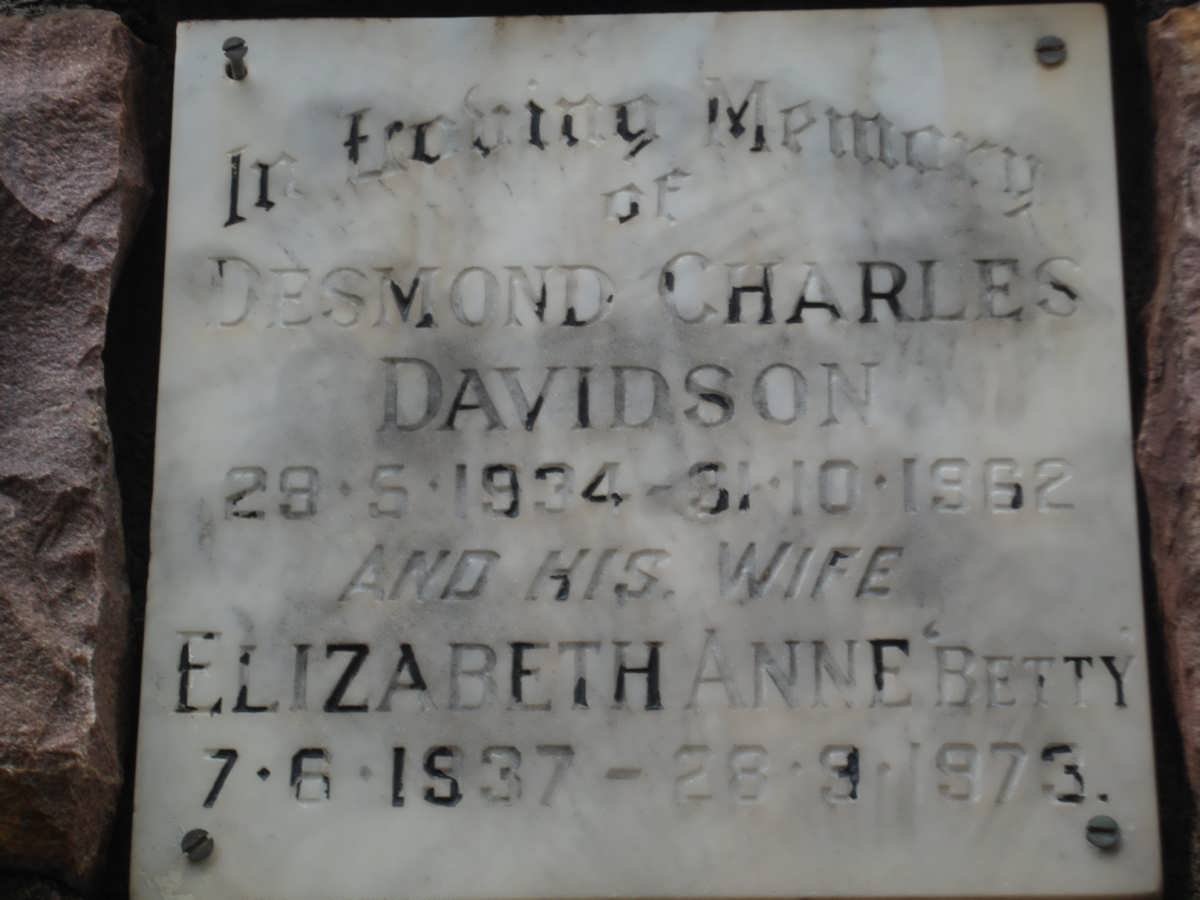 In Loving Memory
of
DESMOND CHARLES
DAVIDSON
29·5·1934 - 31·10·1962
AND HIS WIFE
ELIZABETH ANNE 'BETTY'
7·6·1937 - 28·9·1973.